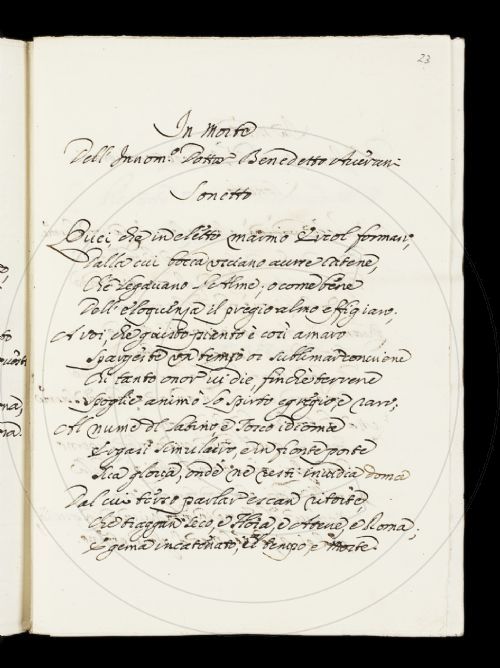 23
In Morte
Dell' Innom.º Dottor Benedetto Averani
Sonetto
che in eletto marmo Ercol formaro,
Dalla cui bocca usciano auree catene,
Che legavano l'Alme; o come bene
Dell' eloquenza il pregio almo effigiaro.
A voi, che questo pianto è così amaro
Spargeste un tempo or sublimar conviene
Chi tanto onor vi die, finchè terrene
Spoglie animò lo spirto egregio, e raro;
Al nume di Latino, e Tosco idioma
Ergasi simulacro, e in fronte porte
Sua gloria, onde ne resti invidia doma
Dal cui terso parlar escan ritorte,
Che traggan seco, e Flora, e Atene, e Roma,
E gema incatenato, e'l tempo, e Morte.